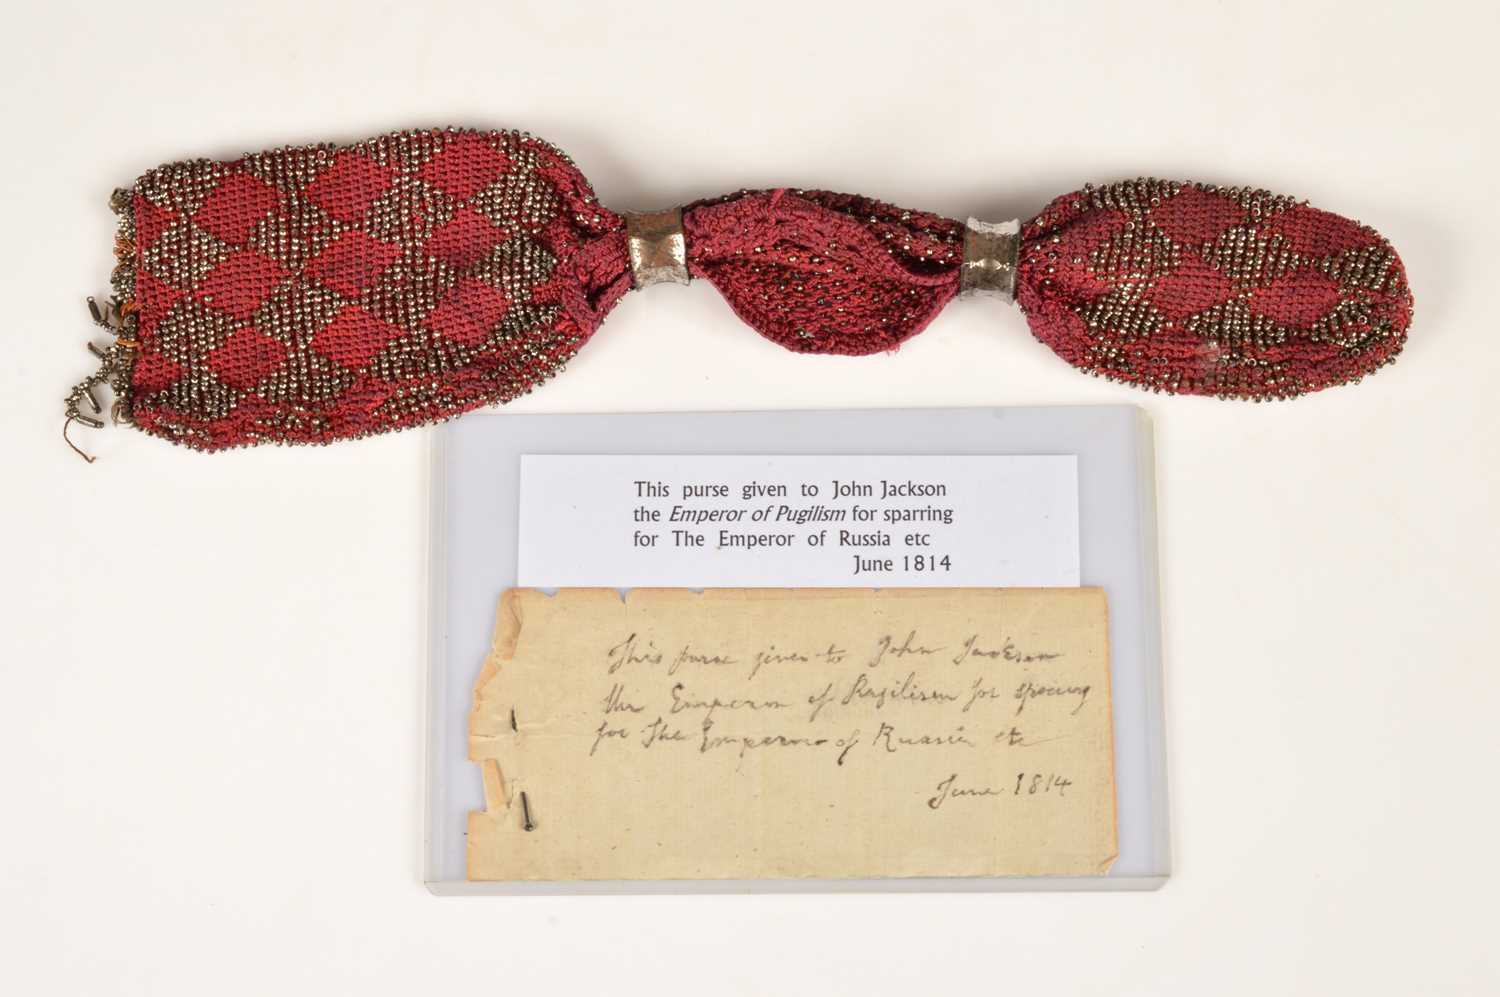 This purse given to John Jackson
the Emperor of Pugilism for sparring
for The Emperor of Russia etc
June 1814
This purse given to John Jackson
the Emperor of Pugilism for sparing
for The Emperor of Russia etc
June 1814